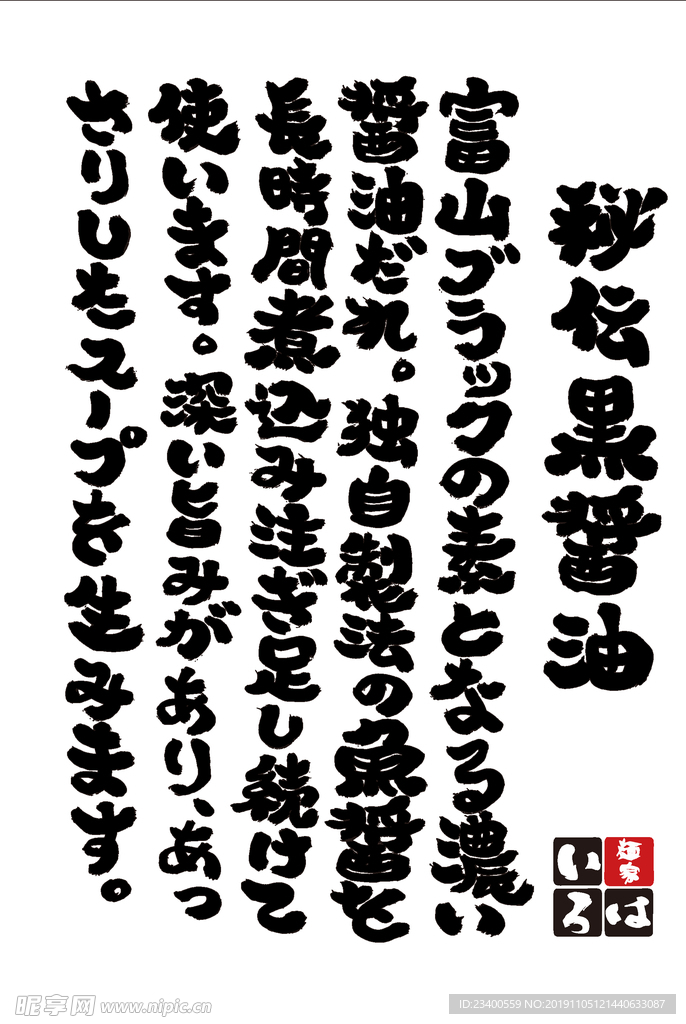 秘伝黒醤油
富山ブラックの素となる濃い
醤油だれ。独自製法の魚醤を
長時間煮込み注ぎ足し続けて
使います。深い旨みがあり、あっ
さりしたスープを生みます。
麺家
いろは
昵享网 www.nipic.cn
ID:23400559 NO:20191105121440633087